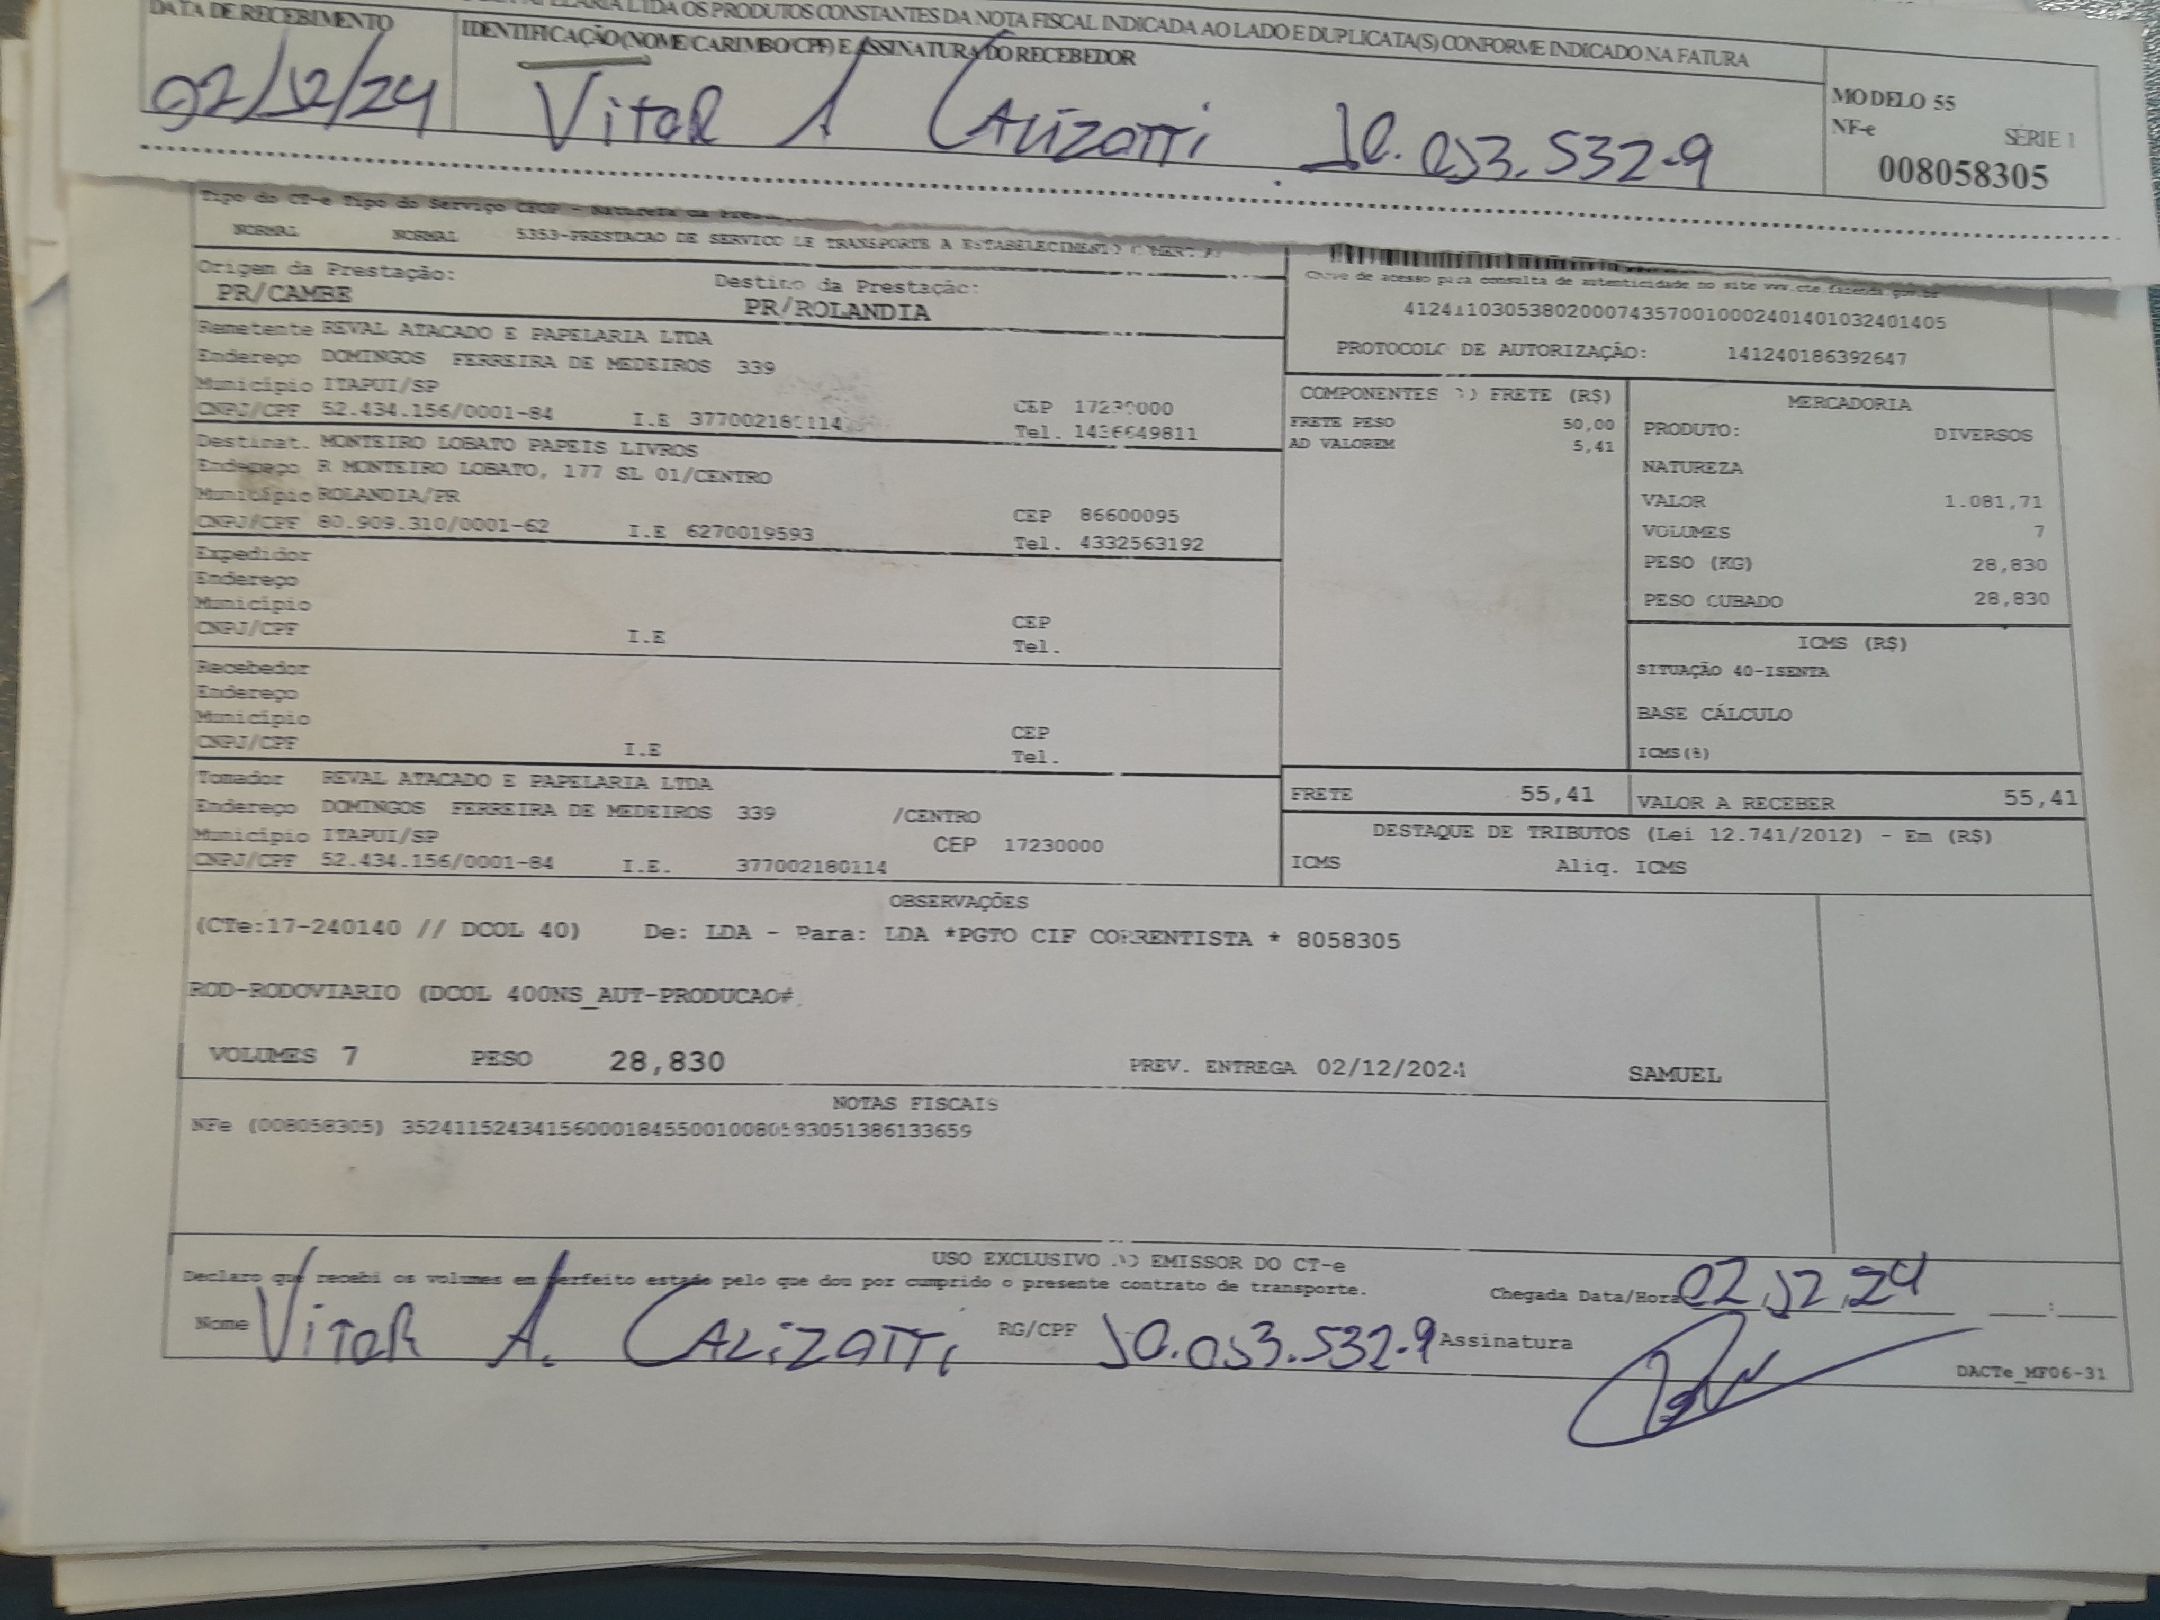 PAPELARIA LTDA OS PRODUTOS CONSTANTES DA NOTA FISCAL INDICADA AO LADO E DUPLICATA(S) CONFORME INDICADO NA FATURA
DATA DE RECEBIMENTO IDENTIFICAÇÃO (NOME/CARIMBO/CPF) E ASSINATURA DO RECEBEDOR
02/12/24 Vitor A Calizotti 10.053.532-9
MODELO 55
NF-e SÉRIE 1
008058305
Tipo do CT-e Tipo do Serviço CFOP - Natureza da
NORMAL NORMAL 5353-PRESTACAO DE SERVICO DE TRANSPORTE A ESTABELECIMENTO
Origem da Prestação: Destino da Prestação:
PR/CAMBE PR/ROLANDIA
Chave de acesso para consulta de autenticidade no site www.cte.fazenda.gov.br
41241103053802000743570010002401401032401405
PROTOCOLO DE AUTORIZAÇÃO: 141240186392647
Remetente REVAL ATACADO E PAPELARIA LTDA
Endereço DOMINGOS FERREIRA DE MEDEIROS 339
Município ITAPUI/SP CEP 17230000
CNPJ/CPF 52.434.156/0001-84 I.E 377002180114 Tel. 1436649811
Destinat. MONTEIRO LOBATO PAPEIS LIVROS
Endereço R MONTEIRO LOBATO, 177 SL 01/CENTRO
Município ROLANDIA/PR CEP 86600095
CNPJ/CPF 80.909.310/0001-62 I.E 6270019593 Tel. 4332563192
Expedidor
Endereço
Município CEP
CNPJ/CPF I.E Tel.
Recebedor
Endereço
Município CEP
CNPJ/CPF I.E Tel.
Tomador REVAL ATACADO E PAPELARIA LTDA
Endereço DOMINGOS FERREIRA DE MEDEIROS 339 /CENTRO
Município ITAPUI/SP CEP 17230000
CNPJ/CPF 52.434.156/0001-84 I.E. 377002180114
COMPONENTES DO FRETE (R$)
FRETE PESO 50,00
AD VALOREM 5,41
MERCADORIA
PRODUTO: DIVERSOS
NATUREZA
VALOR 1.081,71
VOLUMES 7
PESO (KG) 28,830
PESO CUBADO 28,830
ICMS (R$)
SITUAÇÃO 40-ISENTA
BASE CÁLCULO
ICMS(%)
FRETE 55,41 VALOR A RECEBER 55,41
DESTAQUE DE TRIBUTOS (Lei 12.741/2012) - Em (R$)
ICMS Aliq. ICMS
OBSERVAÇÕES
(CTe:17-240140 // DCOL 40) De: LDA - Para: LDA *PGTO CIF CORRENTISTA * 8058305
ROD-RODOVIARIO (DCOL 400NS_AUT-PRODUCAO#
VOLUMES 7 PESO 28,830 PREV. ENTREGA 02/12/2024 SAMUEL
NOTAS FISCAIS
NFe (008058305) 35241152434156000184550010080583051386133659
USO EXCLUSIVO DO EMISSOR DO CT-e
Declaro que recebi os volumes em perfeito estado pelo que dou por cumprido o presente contrato de transporte. Chegada Data/Hora 02,12,24 :
Nome Vitor A. Calizotti RG/CPF 10.053.532-9 Assinatura
DACTe_MF06-31